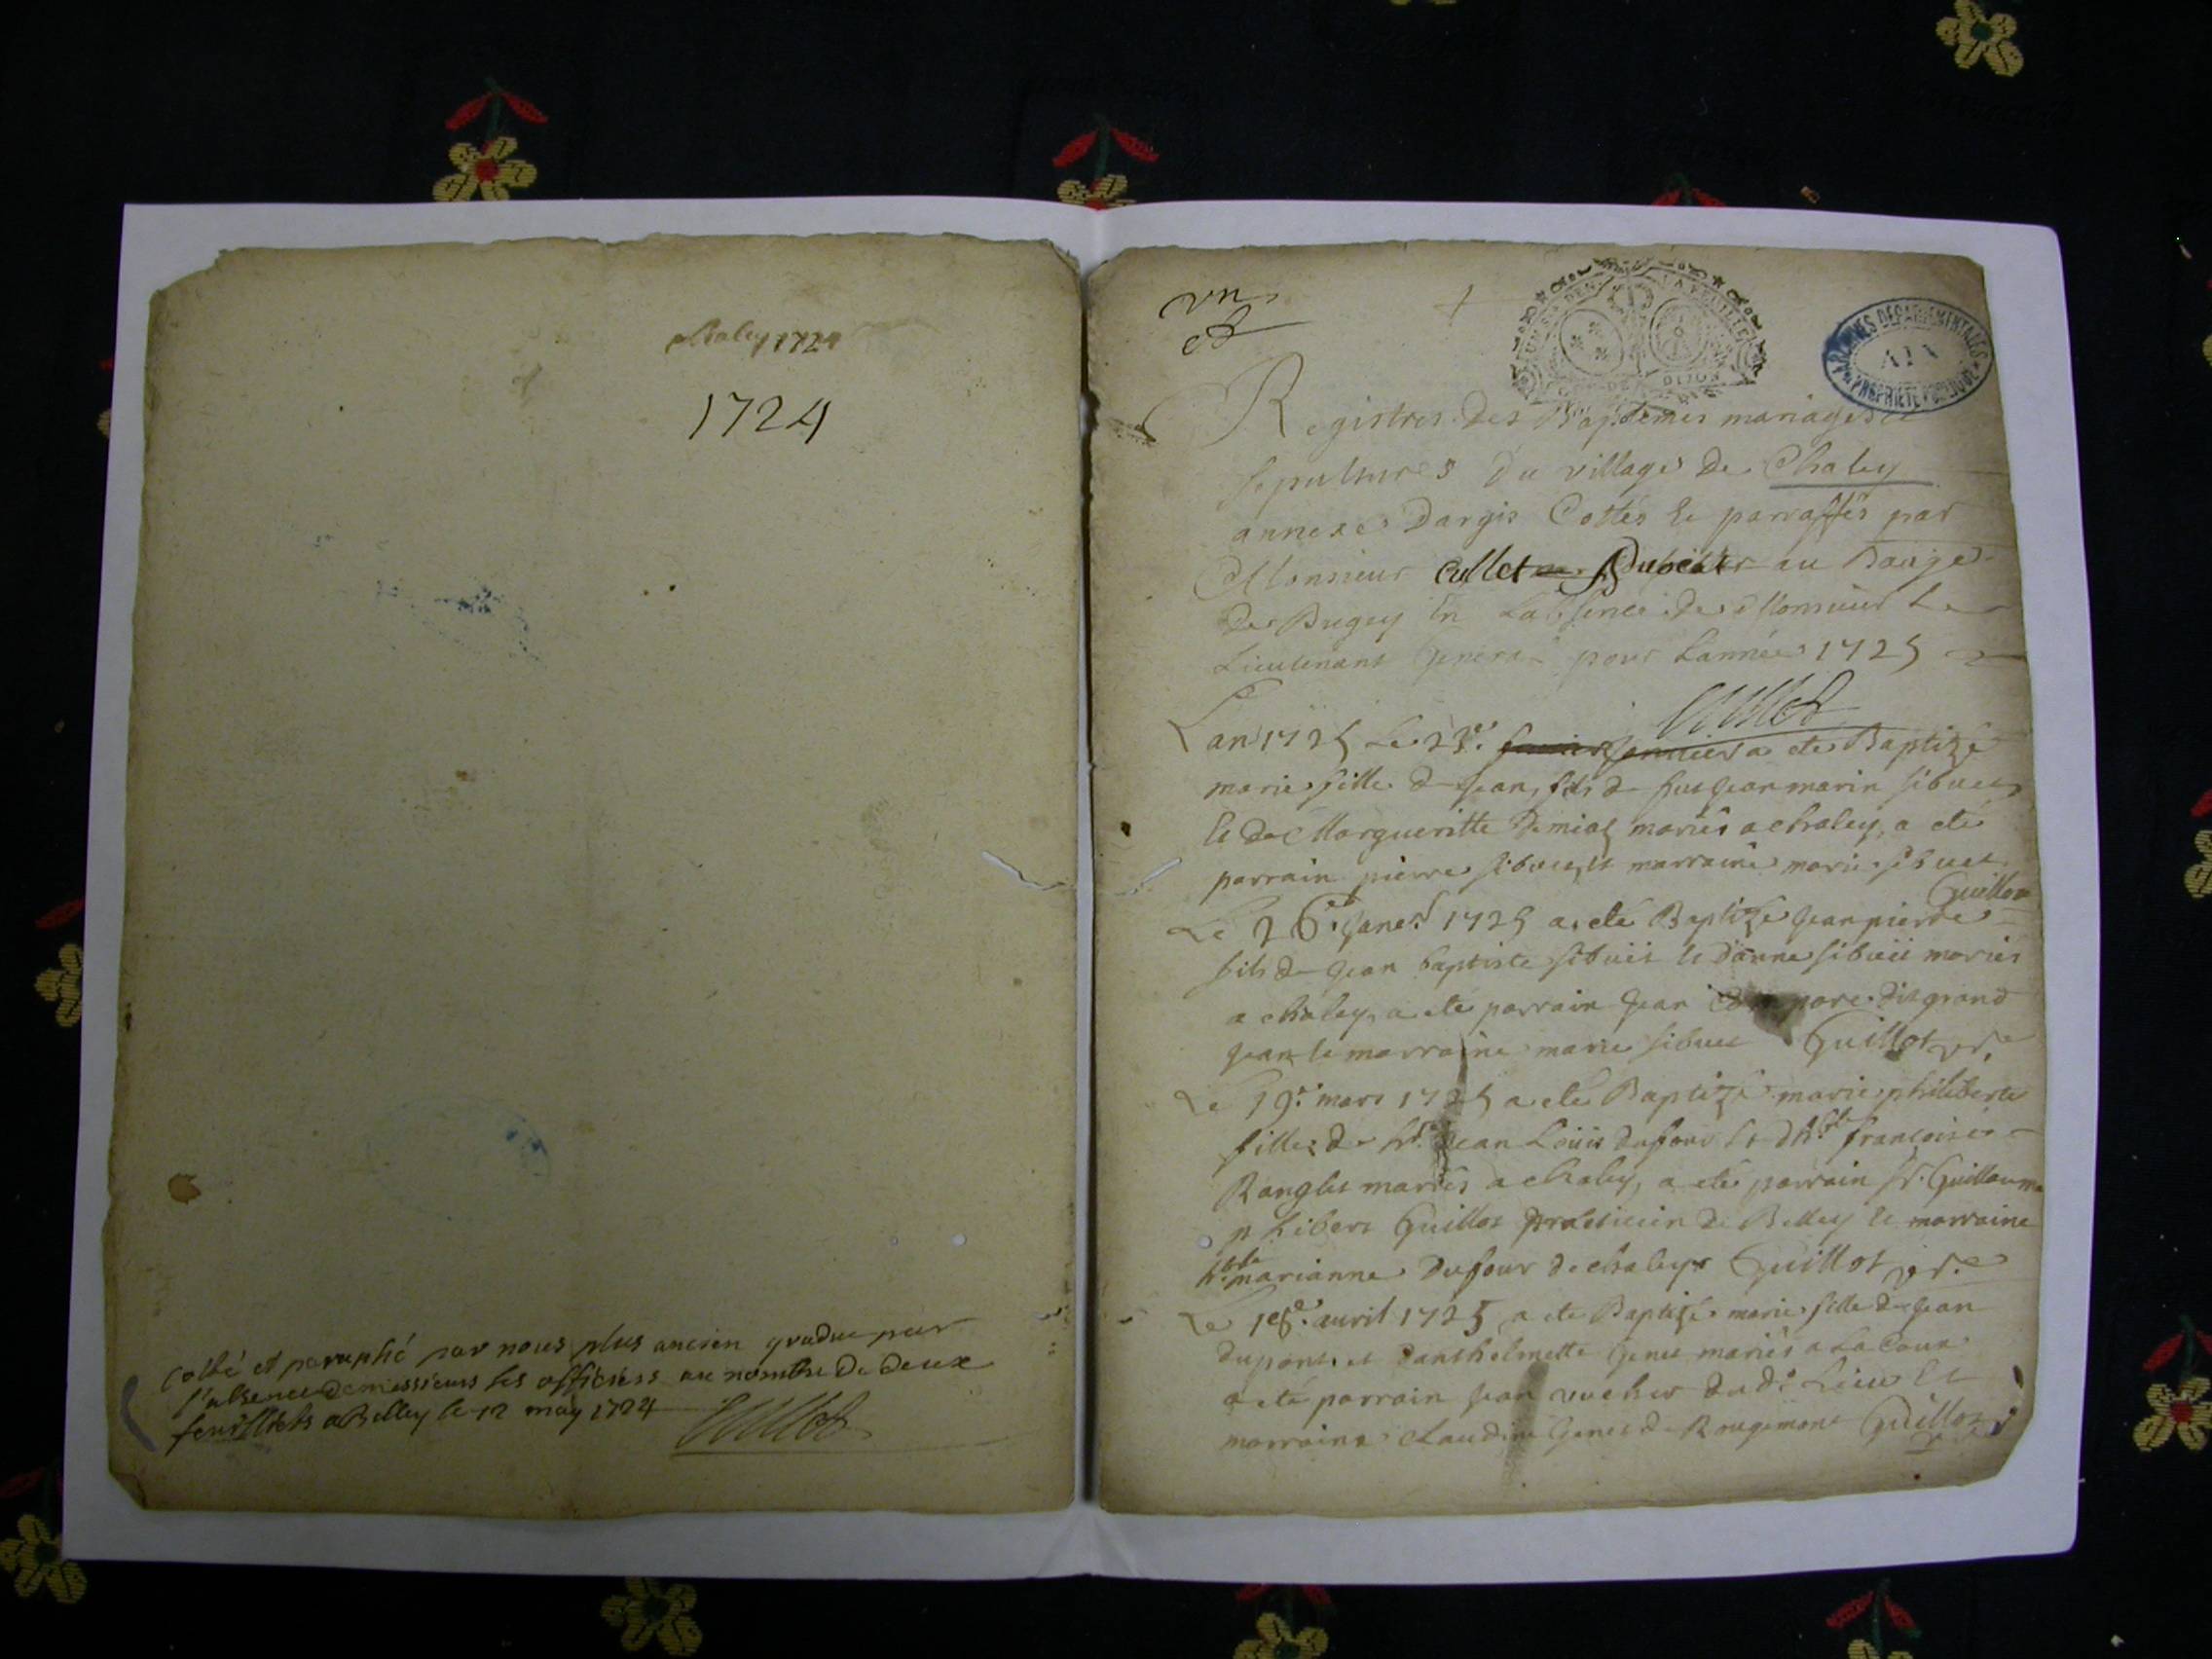 Chaley 1724
1724
Cotté et paraphé par nous plus ancien gradué pour
l'absence de messieurs les officiers au nombre de deux
feuillets a Belley le 12 may 1724
Cullet
vn
UN S DEN LA FEUILLE
DE DIJON
ARCHIVES DEPARTEMENTALES
AIN
PROPRIETE PUBLIQUE
Registres des Baptemes mariages et
sepultures du village de Chaley
annexe Dargis Cottés et parraffés par
Monsieur Cullet au Baige
de Bugey En Labsence de Monsieur Le
Lieutenant General pour Lannée 1725
Cullet
Lan 1725 Le 23e. janvier a eté Baptizé
marie fille de jean, fils de fut jean marin sibuet
et de Margueritte mariés a chaley, a eté
parrain pierre sibuet, et marraine marie sibuet
Guillot
Le 26e. janer 1725 a eté Baptizé jean pierre
fils de jean baptiste sibuet et danne sibuet mariés
a chaley, a eté parrain jean dit grand
jean et marraine marie sibuet Guillot vre
Le 19e. mars 1725 a eté Baptizé marie philiberte
fille de sr. jean Loüis dufour et dhble francoise
Ranglet mariés a chaley, a eté parrain sr. Guillaume
philibert Guillot praticien de Belley et marraine
hble marianne Dufour de chaley Guillot vre
Le 16e. avril 1725 a eté Baptizé marie fille de jean
dupont et danthelmette Genet mariés a La Cour
a eté parrain jean vucher dudt Lieu Et
marraine Claudine Genet de Rougemont Guillot